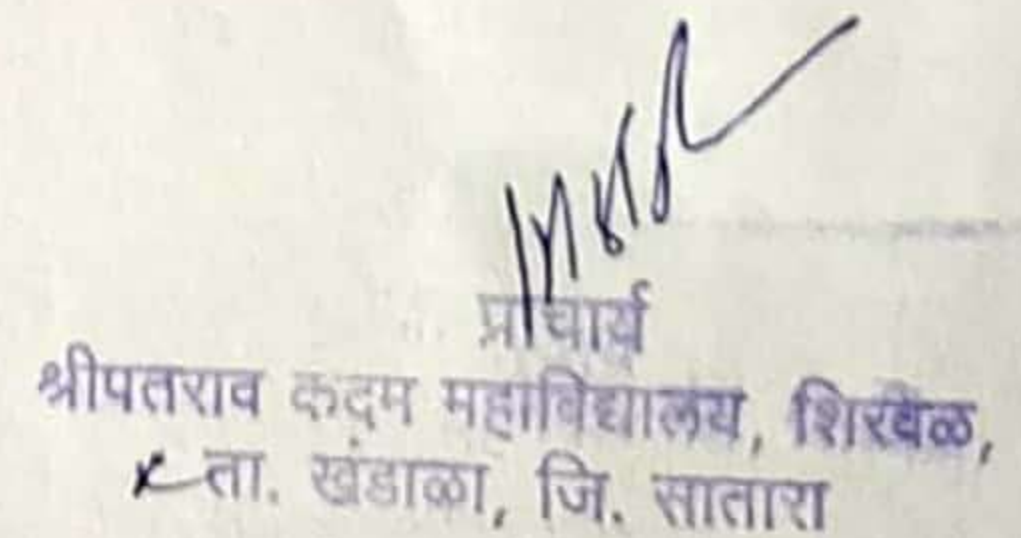 प्राचार्य
श्रीपतराव कदम महाविद्यालय, शिरवळ,
ता. खंडाळा, जि. सातारा